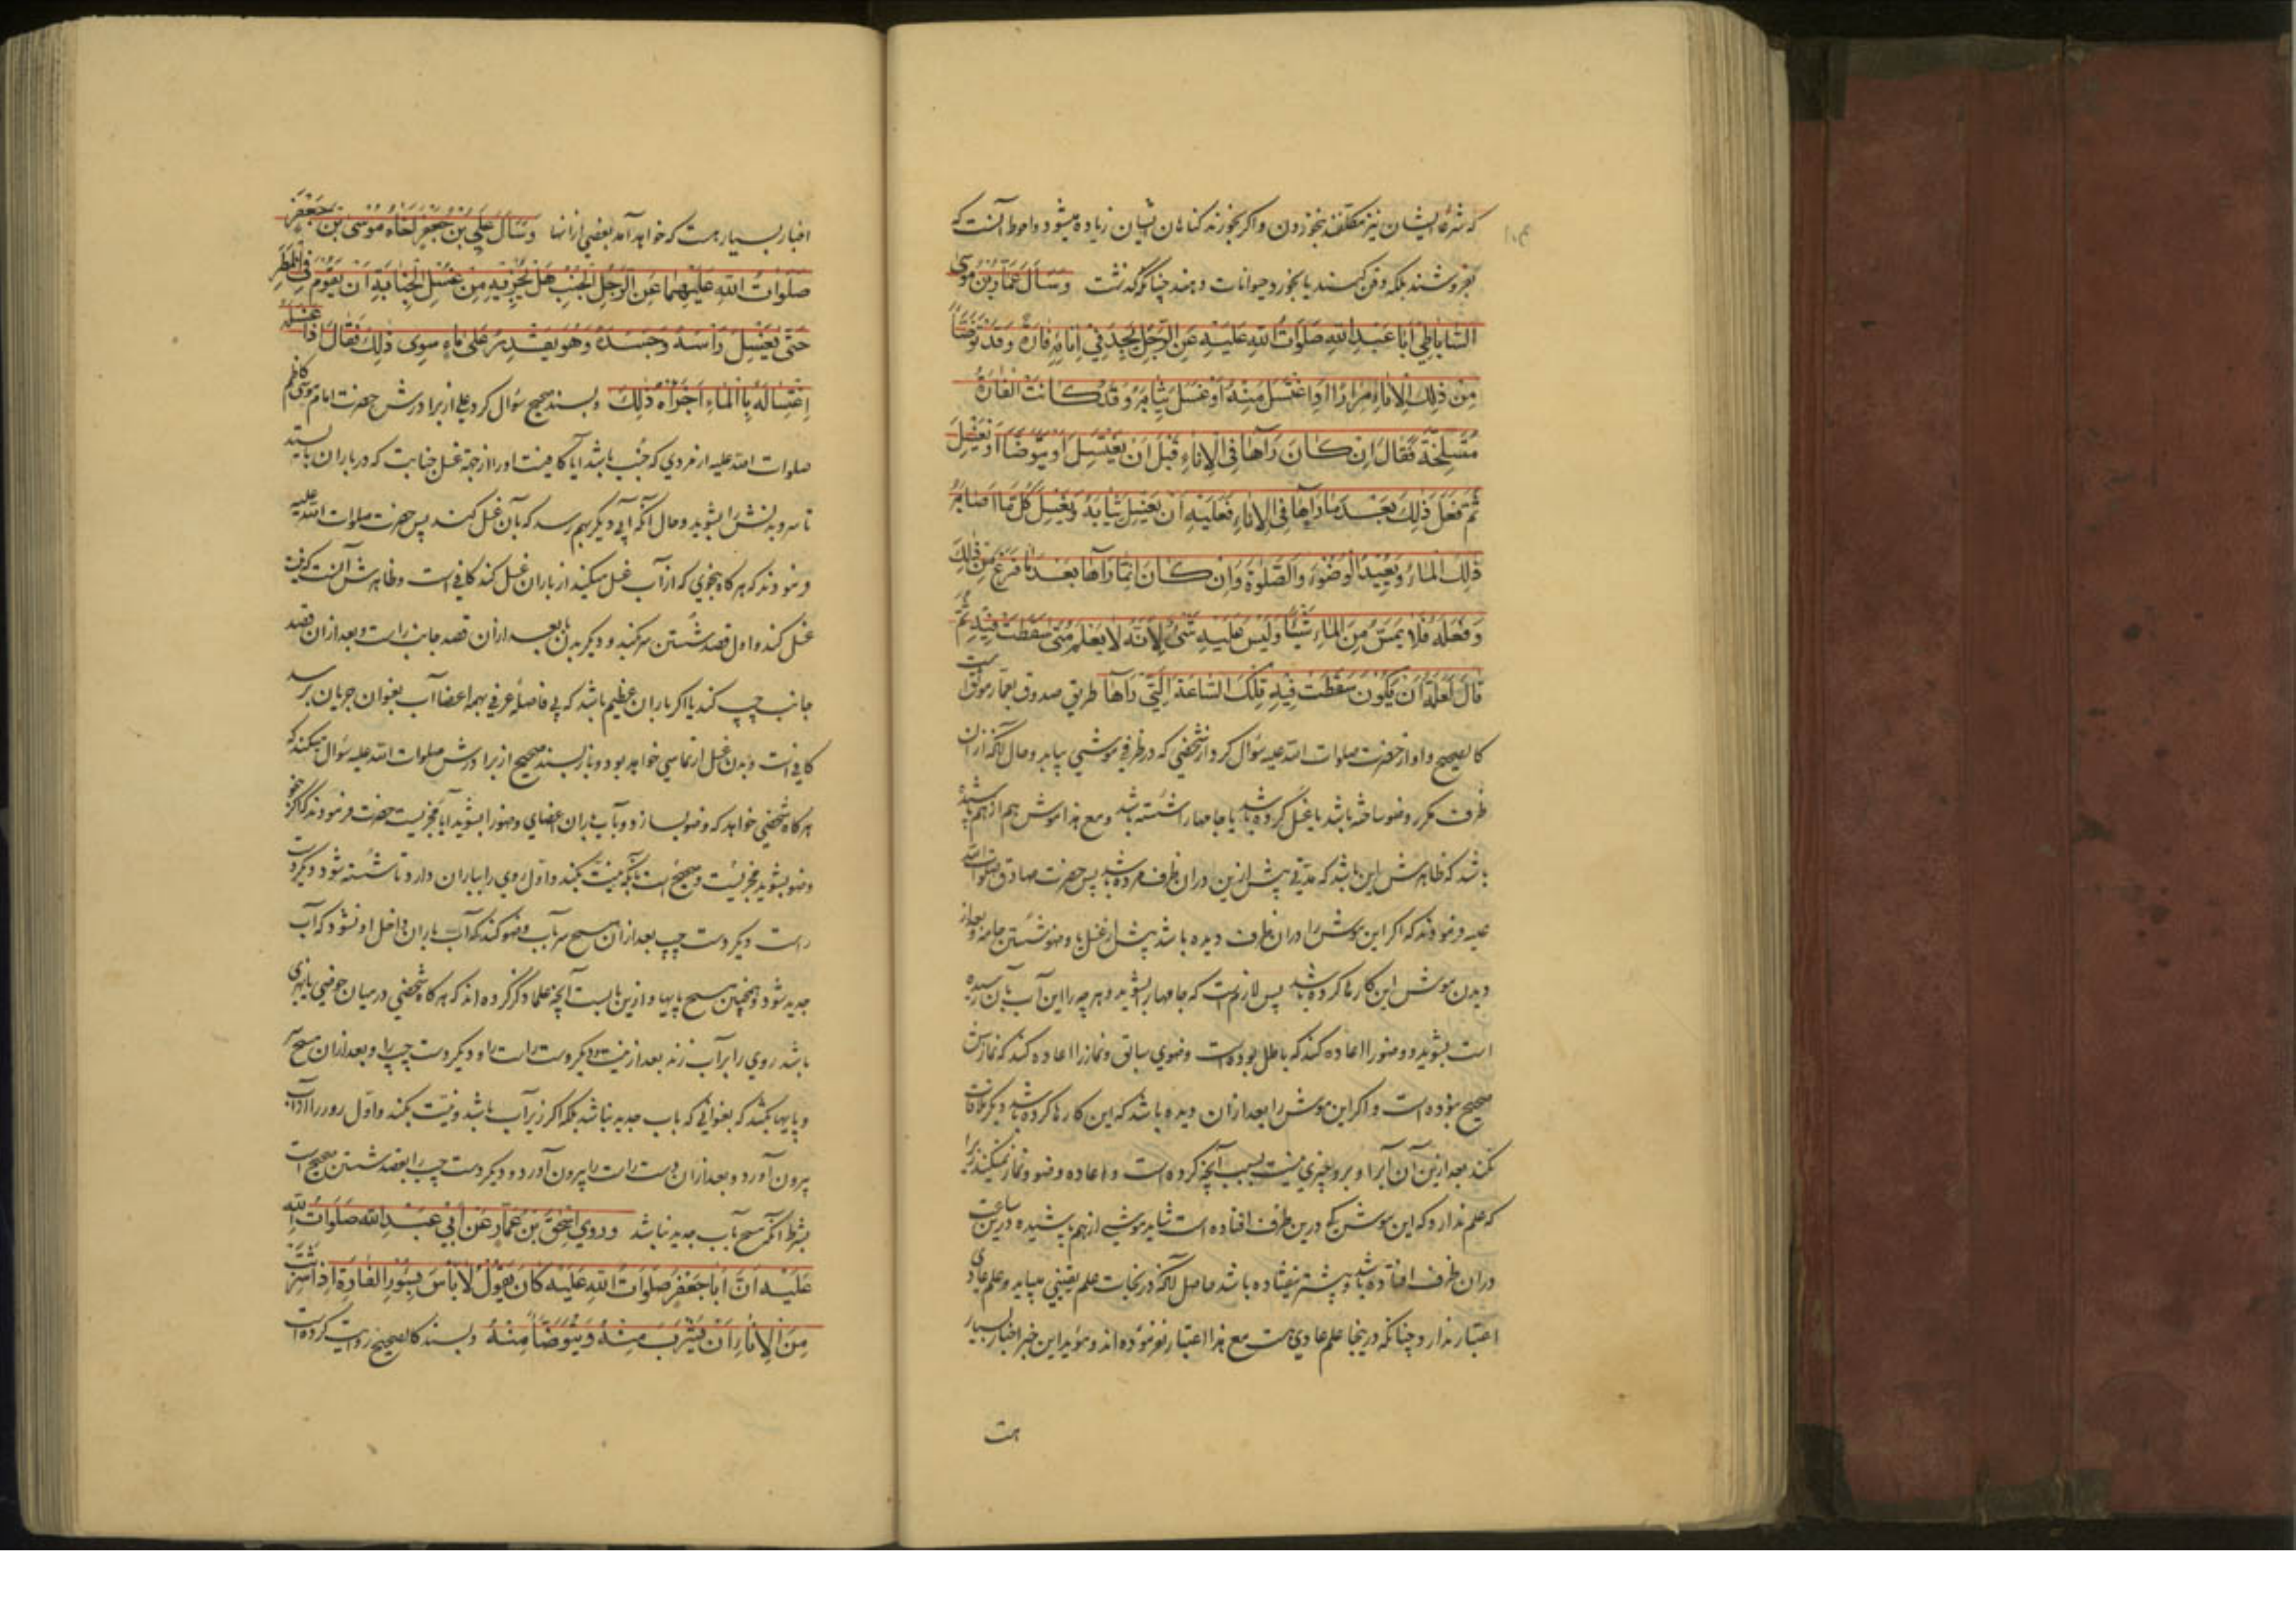 که شرعا ایشان نیز مکلفند بنخوردن و اکر بخورند کناهان ایشان زیاده میشود و احوط آنست که
بفروشند بلکه دفن کنند یا بخورد حیوانات دهند چنانکه گذشت وَسَأَلَ عَمَّارُ بْنُ مُوسَى
السَّابَاطِي أَبَا عَبْدِ اللهِ صَلَوَاتُ اللهِ عَلَيْهِ عَنِ الرَّجُلِ يَجِدُ فِي إِنَائِهِ فَأرَةً وَقَدْ تَوَضَّأَ
مِنْ ذَلِكَ الْإِنَاءِ مِرَارًا أَوِ اغْتَسَلَ مِنْهُ أَوْ غَسَلَ ثِيَابَهُ وَقَدْ كَانَتِ الْفَارَةُ
مُتَسَلِّخَةً فَقَالَ إِنْ كَانَ رَآهَا فِي الْإِنَاءِ قَبْلَ أَنْ يَغْتَسِلَ أَوْ يَتَوَضَّأَ أَوْ يَغْسِلَ
ثُمَّ فَعَلَ ذَلِكَ بَعْدَ مَا رَآهَا فِي الْإِنَاءِ فَعَلَيْهِ أَنْ يَغْسِلَ ثِيَابَهُ وَيَغْسِلَ كُلَّ مَا أَصَابَهُ
ذَلِكَ الْمَاءُ وَيُعِيدَ الْوُضُوءَ وَالصَّلوةَ وَإِنْ كَانَ إِنَّمَا رَآهَا بَعْدَ مَا فَرَغَ مِنْ ذَلِكَ
وَفَعَلَهُ فَلَا يَمَسَّ مِنَ الْمَاءِ شَيْئًا وَلَيْسَ عَلَيْهِ شَيْءٌ لِأَنَّهُ لَا يَعْلَمُ مَتَى سَقَطَتْ فِيهِ ثُمَّ
قَالَ لَعَلَّهُ أَنْ يَكُونَ سَقَطَتْ فِيهِ تِلْكَ السَّاعَةَ الَّتِي رَآهَا طریق صدوق بعمار موثق است
کالصحیح و او از حضرت صلوات الله علیه سؤال کرد از شخصی که در ظرفی موشی بیابد و حال آنکه از آن
ظرف مکرر وضو ساخته باشد یا غسل کرده باشد یا جامها را شسته باشد و مع هذا موش هم از هم پاشیده
باشد که ظاهرش این باشد که مدتی پیش ازین در آن ظرف مرده باشد پس حضرت صادق صلوات الله
علیه فرمودند که اکر این موش را در ان ظرف دیده باشد پیش از غسل یا وضو شستن جامه و بعد از
دیدن موش این کارها کرده باشد پس لازمست که جامها را بشوید و هر چه را این آب بآن رسیده
است بشوید و وضو را اعاده کند که باطل بوده است وضوی سابق و نماز را اعاده کند که نمازش
صحیح نبوده است و اکر این موش را بعد از ان دیده باشد که این کارها کرده باشد دیگر ملاقات
نکند بعد ازین آن آبرا و برو چیزی نیست بسبب آنچه کرده است و اعاده وضو و نماز نمیکند زیرا
که علم ندارد که این موش کی درین ظرف افتاده است شاید موشی از هم پاشیده درین ساعت
در ان ظرف افتاده باشد و پیشتر نیفتاده باشد حاصل آنکه در نجاست علم یقینی میباید و علم عادی
اعتبار ندارد چنانکه درینجا علم عادی هست مع هذا اعتبار نفرموده اند و مؤید این خبر اخبار بسیار
هست
اخبار بسیار هست که خواهد آمد بعضی از انها وَسَأَلَ عَلِيُّ بْنُ جَعْفَرٍ أَخَاهُ مُوسَى بْنَ جَعْفَرٍ
صَلَوَاتُ اللهِ عَلَيْهِمَا عَنِ الرَّجُلِ الْجُنُبِ هَلْ يُجْزِيهِ مِنْ غُسْلِ الْجَنَابَةِ أَنْ يَقُومَ فِي الْمَطَرِ
حَتَّى يَغْسِلَ رَأْسَهُ وَجَسَدَهُ وَهُوَ يَقْدِرُ عَلَى مَاءٍ سِوَى ذَلِكَ فَقَالَ إِذَا غَسَلَهُ
اِغْتِسَالَهُ بِالْمَاءِ أَجْزَأَهُ ذَلِكَ و بسند صحیح سؤال کرد علی از برادرش حضرت امام موسی کاظم
صلوات الله علیه از مردی که جنب باشد آیا کافیست اورا از جهة غسل جنابت که در باران بایستد
تا سر و بدنش را بشوید و حال آنکه آبی دیگر بهم رسد که بآن غسل کند پس حضرت صلوات الله علیه
فرمودند که هر کاه بنحوی که از آب غسل میکند از باران غسل کند کافی است و ظاهرش آنست که نیت
غسل کند و اول قصد شستن سر کند و دیگر بدن بعد از ان قصد جانب راست و بعد از ان قصد
جانب چپ کند یا اکر باران عظیم باشد که بی فاصله عرفی بهمه اعضا آب بعنوان جریان برسد
کافی است و بدن غسل ارتماسی خواهد بود و باز بسند صحیح از برادرش صلوات الله علیه سؤال میکند که
هر کاه شخصی خواهد که وضو بسازد و بآب باران اعضای وضو را بشوید آیا مجزیست حضرت فرمودند که اکر
وضو بشوید مجزیست و صحیح است بآنکه نیت بکند و اول روی را بباران دارد تا شسته شود و دیگر دست
راست و دیگر دست چپ بعد از ان مسح سر بآب وضو کند که آب باران داخل او نشود که آب
جدید شود و همچنین مسح پایها و ازین بابست آنچه علما ذکر کرده اند که هر کاه شخصی در میان حوضی یا نهری
باشد روی را برآب زند بعد از نیت و دیگر دست راست را و دیگر دست چپ را و بعد از ان مسح سر
و پایها بکشد که بعنوانی که بآب جدید نباشد بلکه اکر زیر آب باشد و نیت بکند و اول رو را از آب
بیرون آورد و بعد از ان دست راست را بیرون آورد و دیگر دست چپ را بقصد شستن صحیح است
بشرط آنکه مسح بآب جدید نباشد وَرَوَى إِسْحَقُ بْنُ عَمَّارٍ عَنْ أَبِي عَبْدِ اللهِ صَلَوَاتُ اللهِ
عَلَيْهِ أَنَّ أَبَا جَعْفَرٍ صَلَوَاتُ اللهِ عَلَيْهِ كَانَ يَقُولُ لَا بَأْسَ بِسُؤْرِ الْفَارَةِ إِذَا شَرِبَتْ
مِنَ الْإِنَاءِ أَنْ يُشْرَبَ مِنْهُ وَيُتَوَضَّأَ مِنْهُ و بسند کالصحیح روایت کرده است